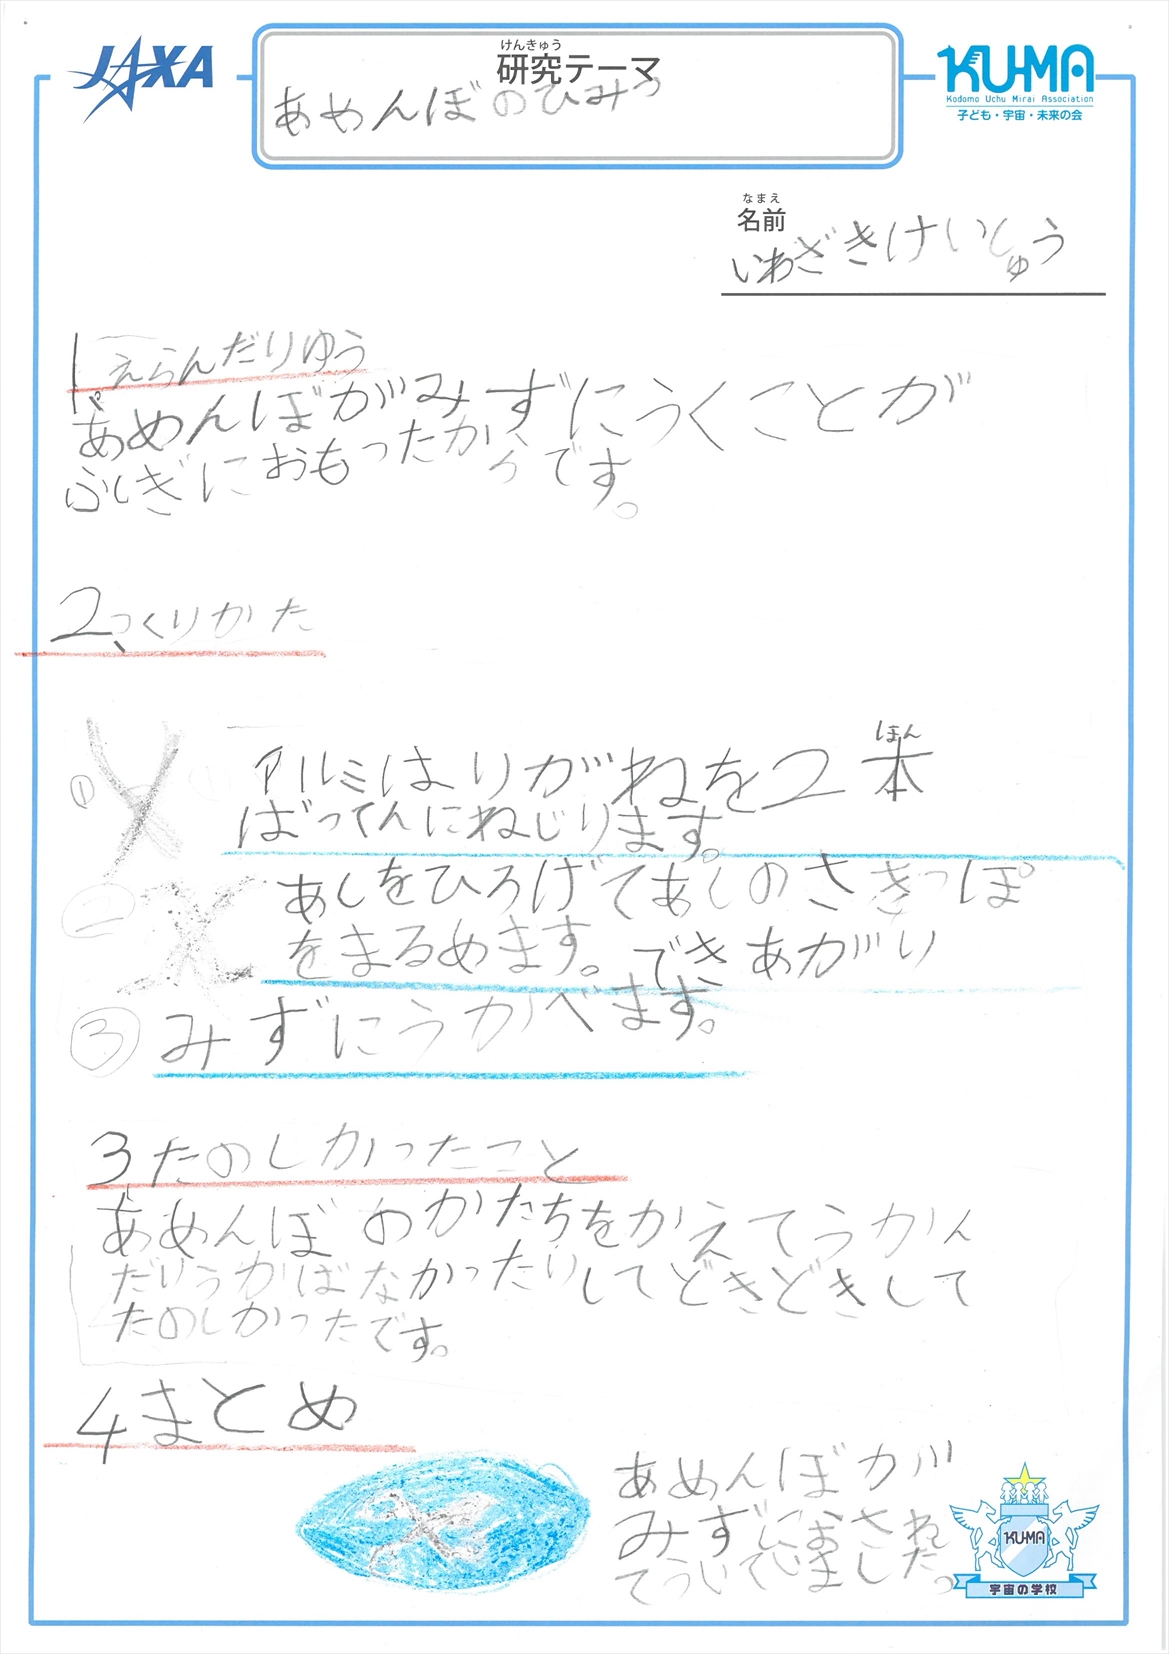 JAXA
けんきゅう
研究テーマ
あめんぼのひみつ
KU-MA
Kodomo Uchu Mirai Association
子ども・宇宙・未来の会
なまえ
名前
いわざきけいしゅう
1 えらんだりゆう
あめんぼがみずにうくことが
ふしぎにおもったからです。
2、つくりかた
ほん
① アルミはりがねを2本
ばってんにねじります。
② あしをひろげてあしのさきっぽ
をまるめます。できあがり
③ みずにうかべます。
3 たのしかったこと
あめんぼのかたちをかえてうかん
だりうかばなかったりしてどきどきして
たのしかったです。
4 まとめ
あめんぼが
みずにおされ
てういていました。
KU-MA
宇宙の学校